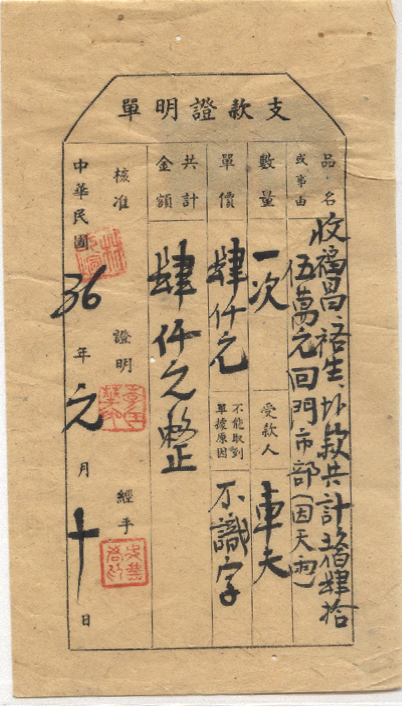 支款證明單
品名
或事由
收福昌、裕生、款共計佰肆拾
伍萬元回門市部(因天雨)
數量 一次 受款人 車夫
單價 肆仟元 不能取到單據原因 不識字
共計金額 肆仟元整
核准 證明 經手
中華民國36年元月十日